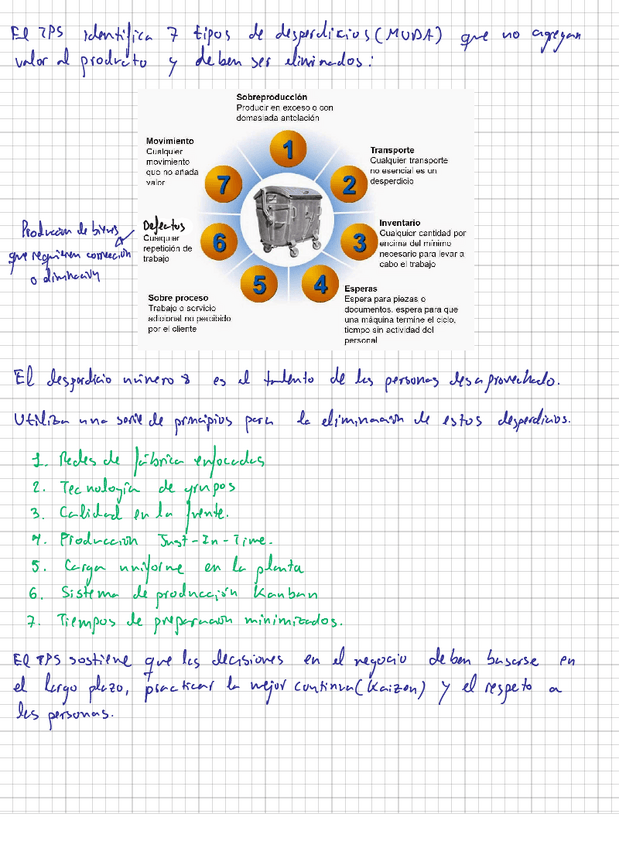 El TPS identifica 7 tipos de desperdicios (MUDA) que no agregan
valor al producto y deben ser eliminados:
Sobreproducción
Producir en exceso o con
demasiada antelación
1
Transporte
Cualquier transporte
no esencial es un
desperdicio
2
Inventario
Cualquier cantidad por
encima del mínimo
necesario para levar a
cabo el trabajo
3
Esperas
Espera para piezas o
documentos, espera para que
una máquina termine el ciclo,
tiempo sin actividad del
personal
4
Sobre proceso
Trabajo o servicio
adicional no percibido
por el cliente
5
Defectos
Cualquier
repetición de
trabajo
6
Producción de bienes
que requieren corrección
o eliminación
Movimiento
Cualquier
movimiento
que no añada
valor
7
El desperdicio número 8 es el talento de las personas desaprovechado.
Utiliza una serie de principios para la eliminación de estos desperdicios.
1. Redes de fábrica enfocadas
2. Tecnología de grupos
3. Calidad en la fuente.
4. Producción Just-In-Time.
5. Carga uniforme en la planta
6. Sistema de producción Kanban
7. Tiempos de preparación minimizados.
El TPS sostiene que las decisiones en el negocio deben basarse en
el largo plazo, practicar la mejor continua (Kaizen) y el respeto a
las personas.